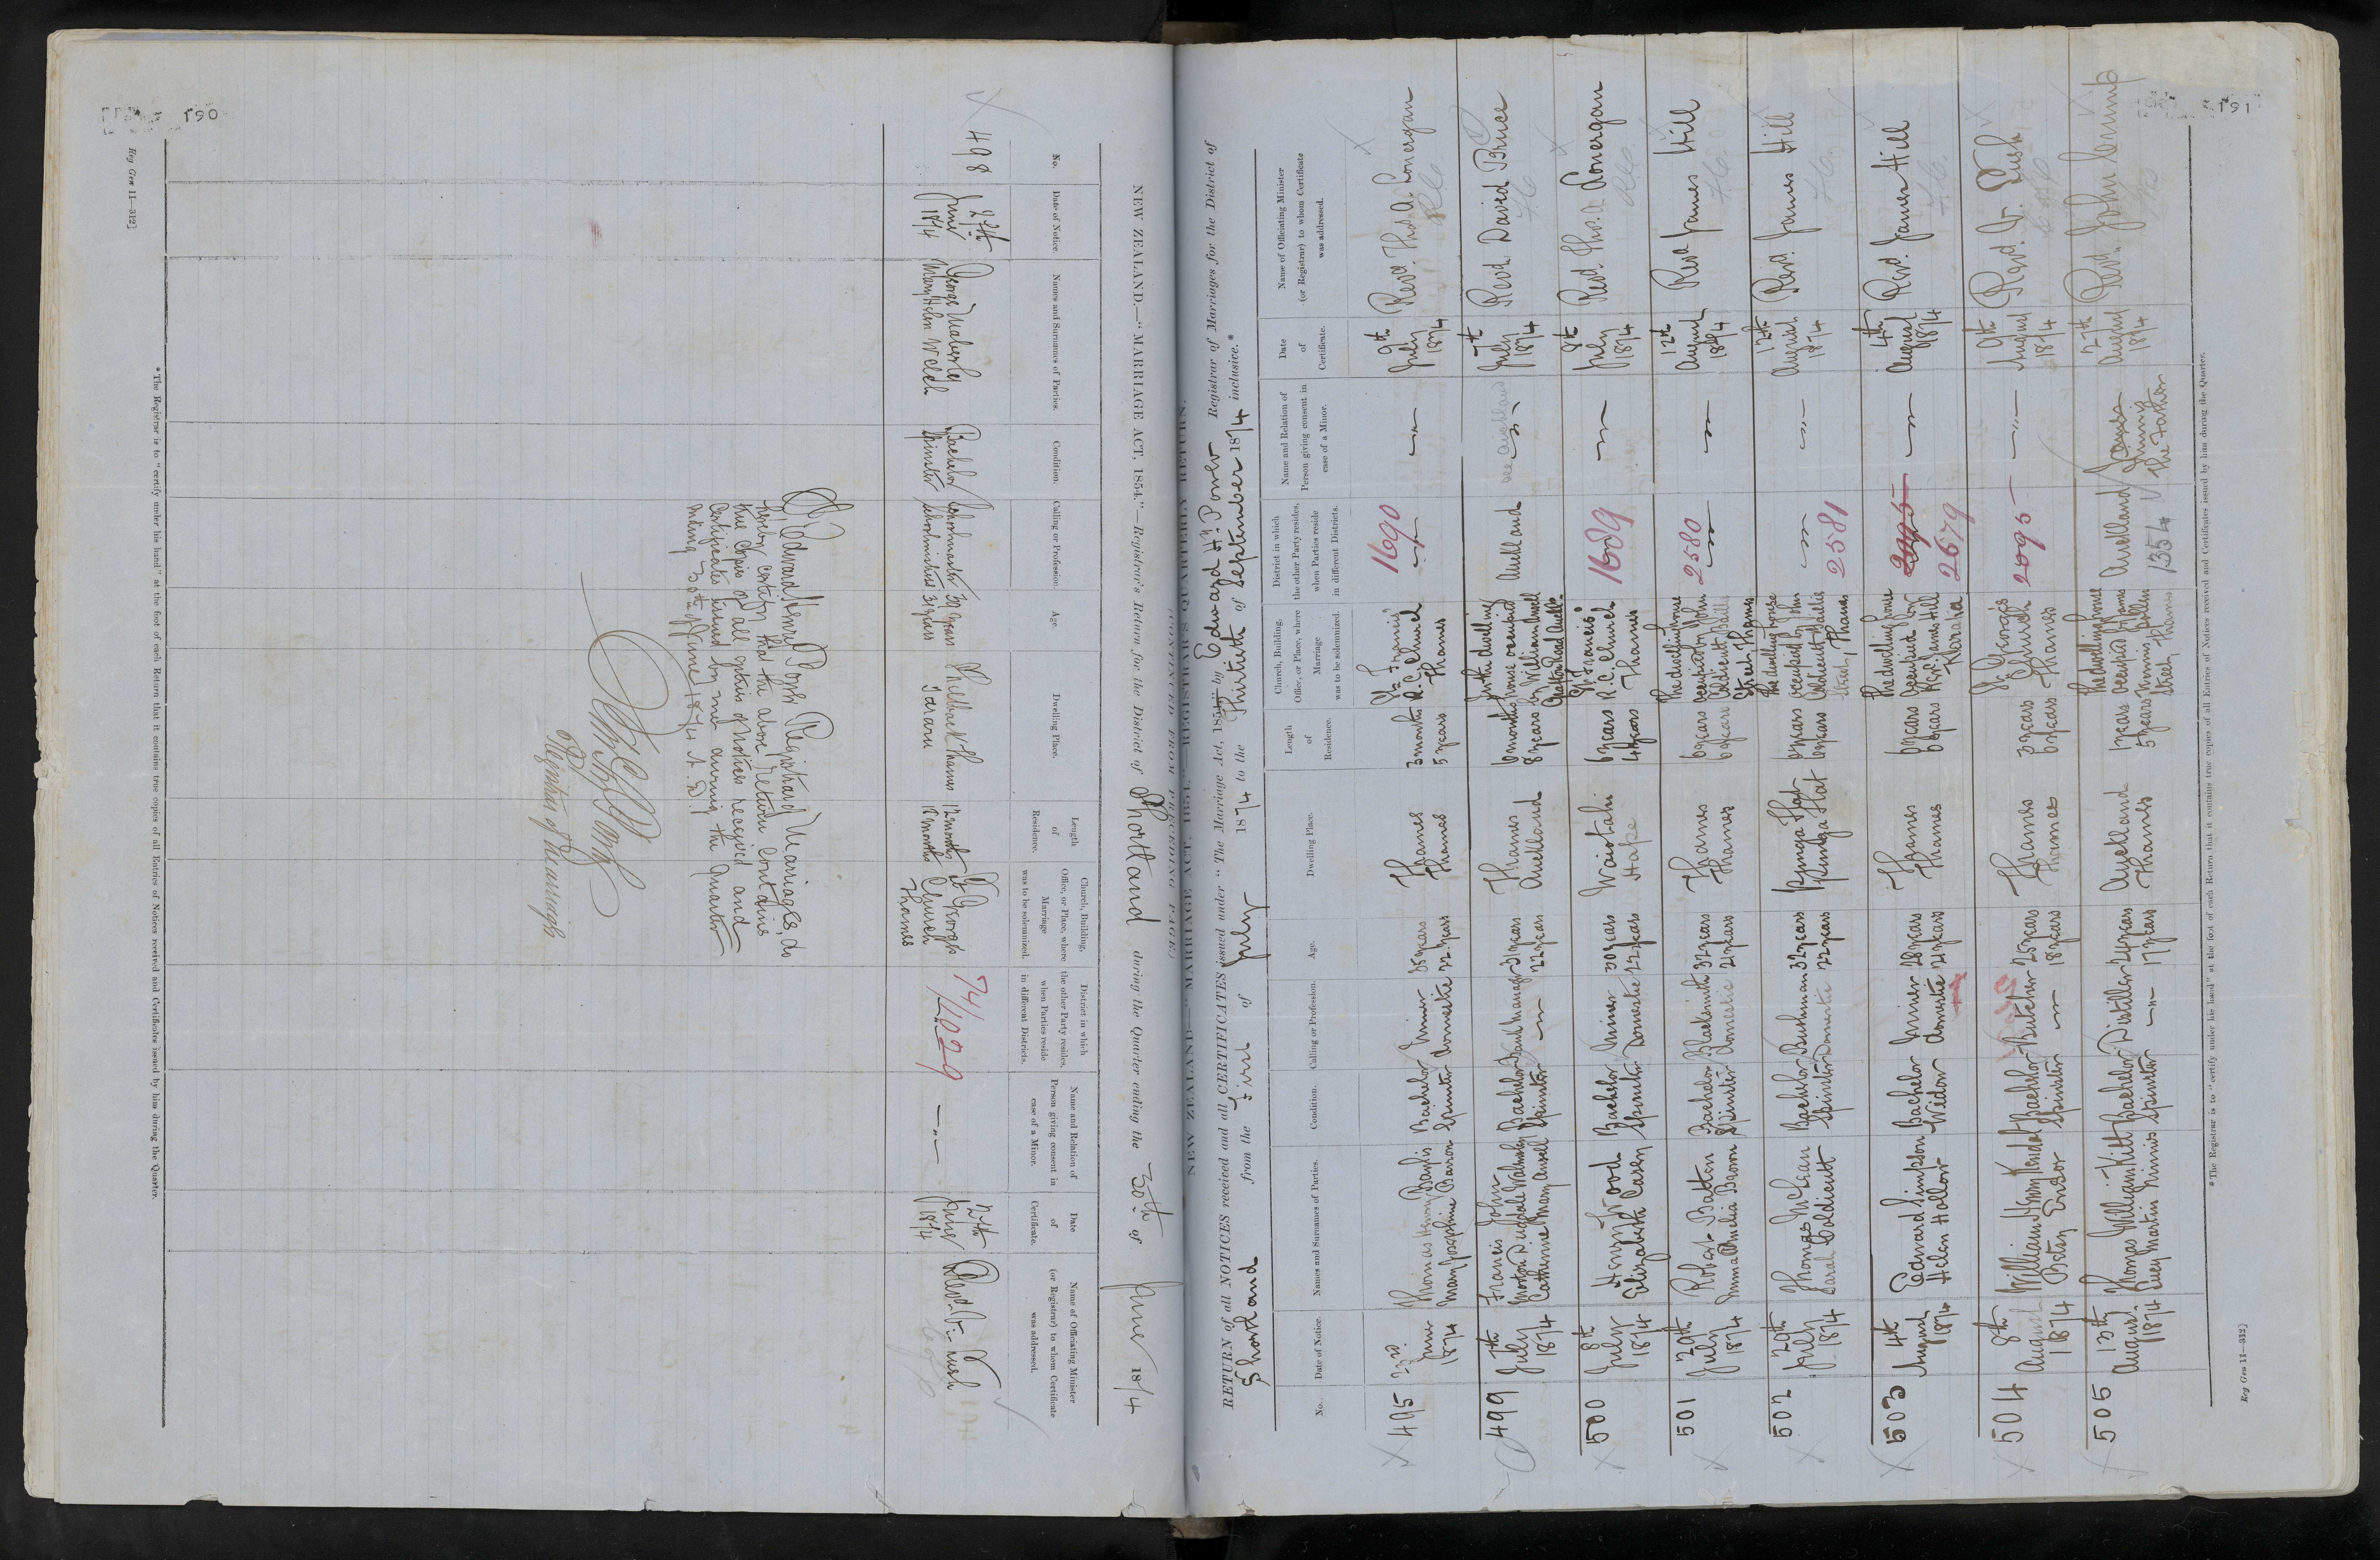 190
Reg Gen 11—312]
NEW ZEALAND.—"MARRIAGE ACT, 1854."—Registrar's Return for the District of Shortland during the Quarter ending the 30th of June 1874
No.
Date of Notice.
Names and Surnames of Parties.
Condition.
Calling or Profession.
Age.
Dwelling Place.
Length
of
Residence.
Church, Building,
Office, or Place, where
Marriage
was to be solemnized.
District in which
the other Party resides,
when Parties reside
in different Districts.
Name and Relation of
Person giving consent in
case of a Minor.
Date
of
Certificate.
Name of Officiating Minister
(or Registrar) to whom Certificate
was addressed.
498
June
1874
George
Mary Helen Welch
Bachelor
Spinster
Schoolmaster
Schoolmistress
39 years
31 years
Shellback Thames
Tararu
12 months
12 months
St Georges
Church
Thames
74/1029
—"—
June
1874
Revd V. Lush
I, Edward Henry Power Registrar of Marriages, do
hereby certify that the above return contains
true copies of all entries of Notices received and
Certificates issued by me during the Quarter
ending 30th of June 1874 A.D.
Registrar of Marriages
* The Registrar is to "certify under his hand" at the foot of each Return that it contains true copies of all Entries of Notices received and Certificates issued by him during the Quarter.
191
NEW ZEALAND.—"MARRIAGE ACT, 1854."—REGISTRAR'S QUARTERLY RETURN.
RETURN of all NOTICES received and all CERTIFICATES issued under "The Marriage Act, 1854," by Edward Hy. Power Registrar of Marriages for the District of
Shortland from the First of July 1874 to the Thirtieth of September 1874 inclusive.*
No.
Date of Notice.
Names and Surnames of Parties.
Condition.
Calling or Profession.
Age.
Dwelling Place.
Length
of
Residence.
Church, Building,
Office, or Place, where
Marriage
was to be solemnized.
District in which
the other Party resides,
when Parties reside
in different Districts.
Name and Relation of
Person giving consent in
case of a Minor.
Date
of
Certificate.
Name of Officiating Minister
(or Registrar) to whom Certificate
was addressed.
495
23rd
June
1874
Thomas Henry Baylis
Mary Josephine Barron
Bachelor
Spinster
Miner
Domestic
35 years
22 years
Thames
Thames
3 months
5 years
St. Francis'
R.C. Church
Thames
1690
—"—
9th
July
1874
Revd. Thos. A. Lonergan
499
7th
July
1874
Francis John
Morton Dugdale Walmsley
Catherine Mary Ansel
Bachelor
Spinster
Bank Manager
—"—
31 years
22 years
Thames
Auckland
6 months
8 years
In the dwelling
house occupied
by William Ansell
Grafton Road Auckld.
Auckland
see Auckland
7th
July
1874
Revd David Bruce
500
8th
July
1874
Henry Wood
Elizabeth Casey
Bachelor
Spinster
Miner
Domestic
30 years
22 years
Waiotahi
Hape
6 years
4 years
St. Francis'
R.C. Church
Thames
1689
—"—
8th
July
1874
Revd. Thos. Lonergan
501
29th
July
1874
Robert Batten
Emma Amelia Brown
Bachelor
Spinster
Blacksmith
Domestic
32 years
21 years
Thames
Thames
6 years
6 years
The dwelling house
occupied by John
Coldicutt Baillie
Street Thames
2580
—"—
12th
August
1874
Revd James Hill
502
29th
July
1874
Thomas McLean
Sarah Coldicutt
Bachelor
Spinster
Bushman
Domestic
32 years
22 years
Punga Flat
Punga Flat
6 years
6 years
The dwelling house
occupied by John
Coldicutt Baillie
Street, Thames
—"—
2581
12th
August
1874
Revd. James Hill
503
4th
August
1874
Edward Simpson
Helen Hollow
Bachelor
Widow
Miner
Domestic
28 years
21 years
Thames
Thames
6 years
6 years
The dwelling house
occupied by
Revd. James Hill
Karaka
2095
2579
—"—
4th
August
1874
Revd. James Hill
504
8th
August
1874
William Henry Kendal
Betsy Endor
Bachelor
Spinster
Butcher
—"—
25 years
18 years
Thames
Thames
3 years
6 years
St. George's
Church
Thames
2095
—"—
9th
August
1874
Revd. V. Lush
505
13th
August
1874
Thomas William Kitt
Lucy Martin Ninnis
Bachelor
Spinster
Distiller
—"—
24 years
17 years
Auckland
Thames
1 years
5 years
The dwelling house
occupied by James
Ninnis
Street, Thames
Auckland
1354
James
Ninnis
The Father
27th
August
1874
Revd. John Crump
* The Registrar is to "certify under his hand" at the foot of each Return that it contains true copies of all Entries of Notices received and Certificates issued by him during the Quarter.
Reg Gen 11—312]